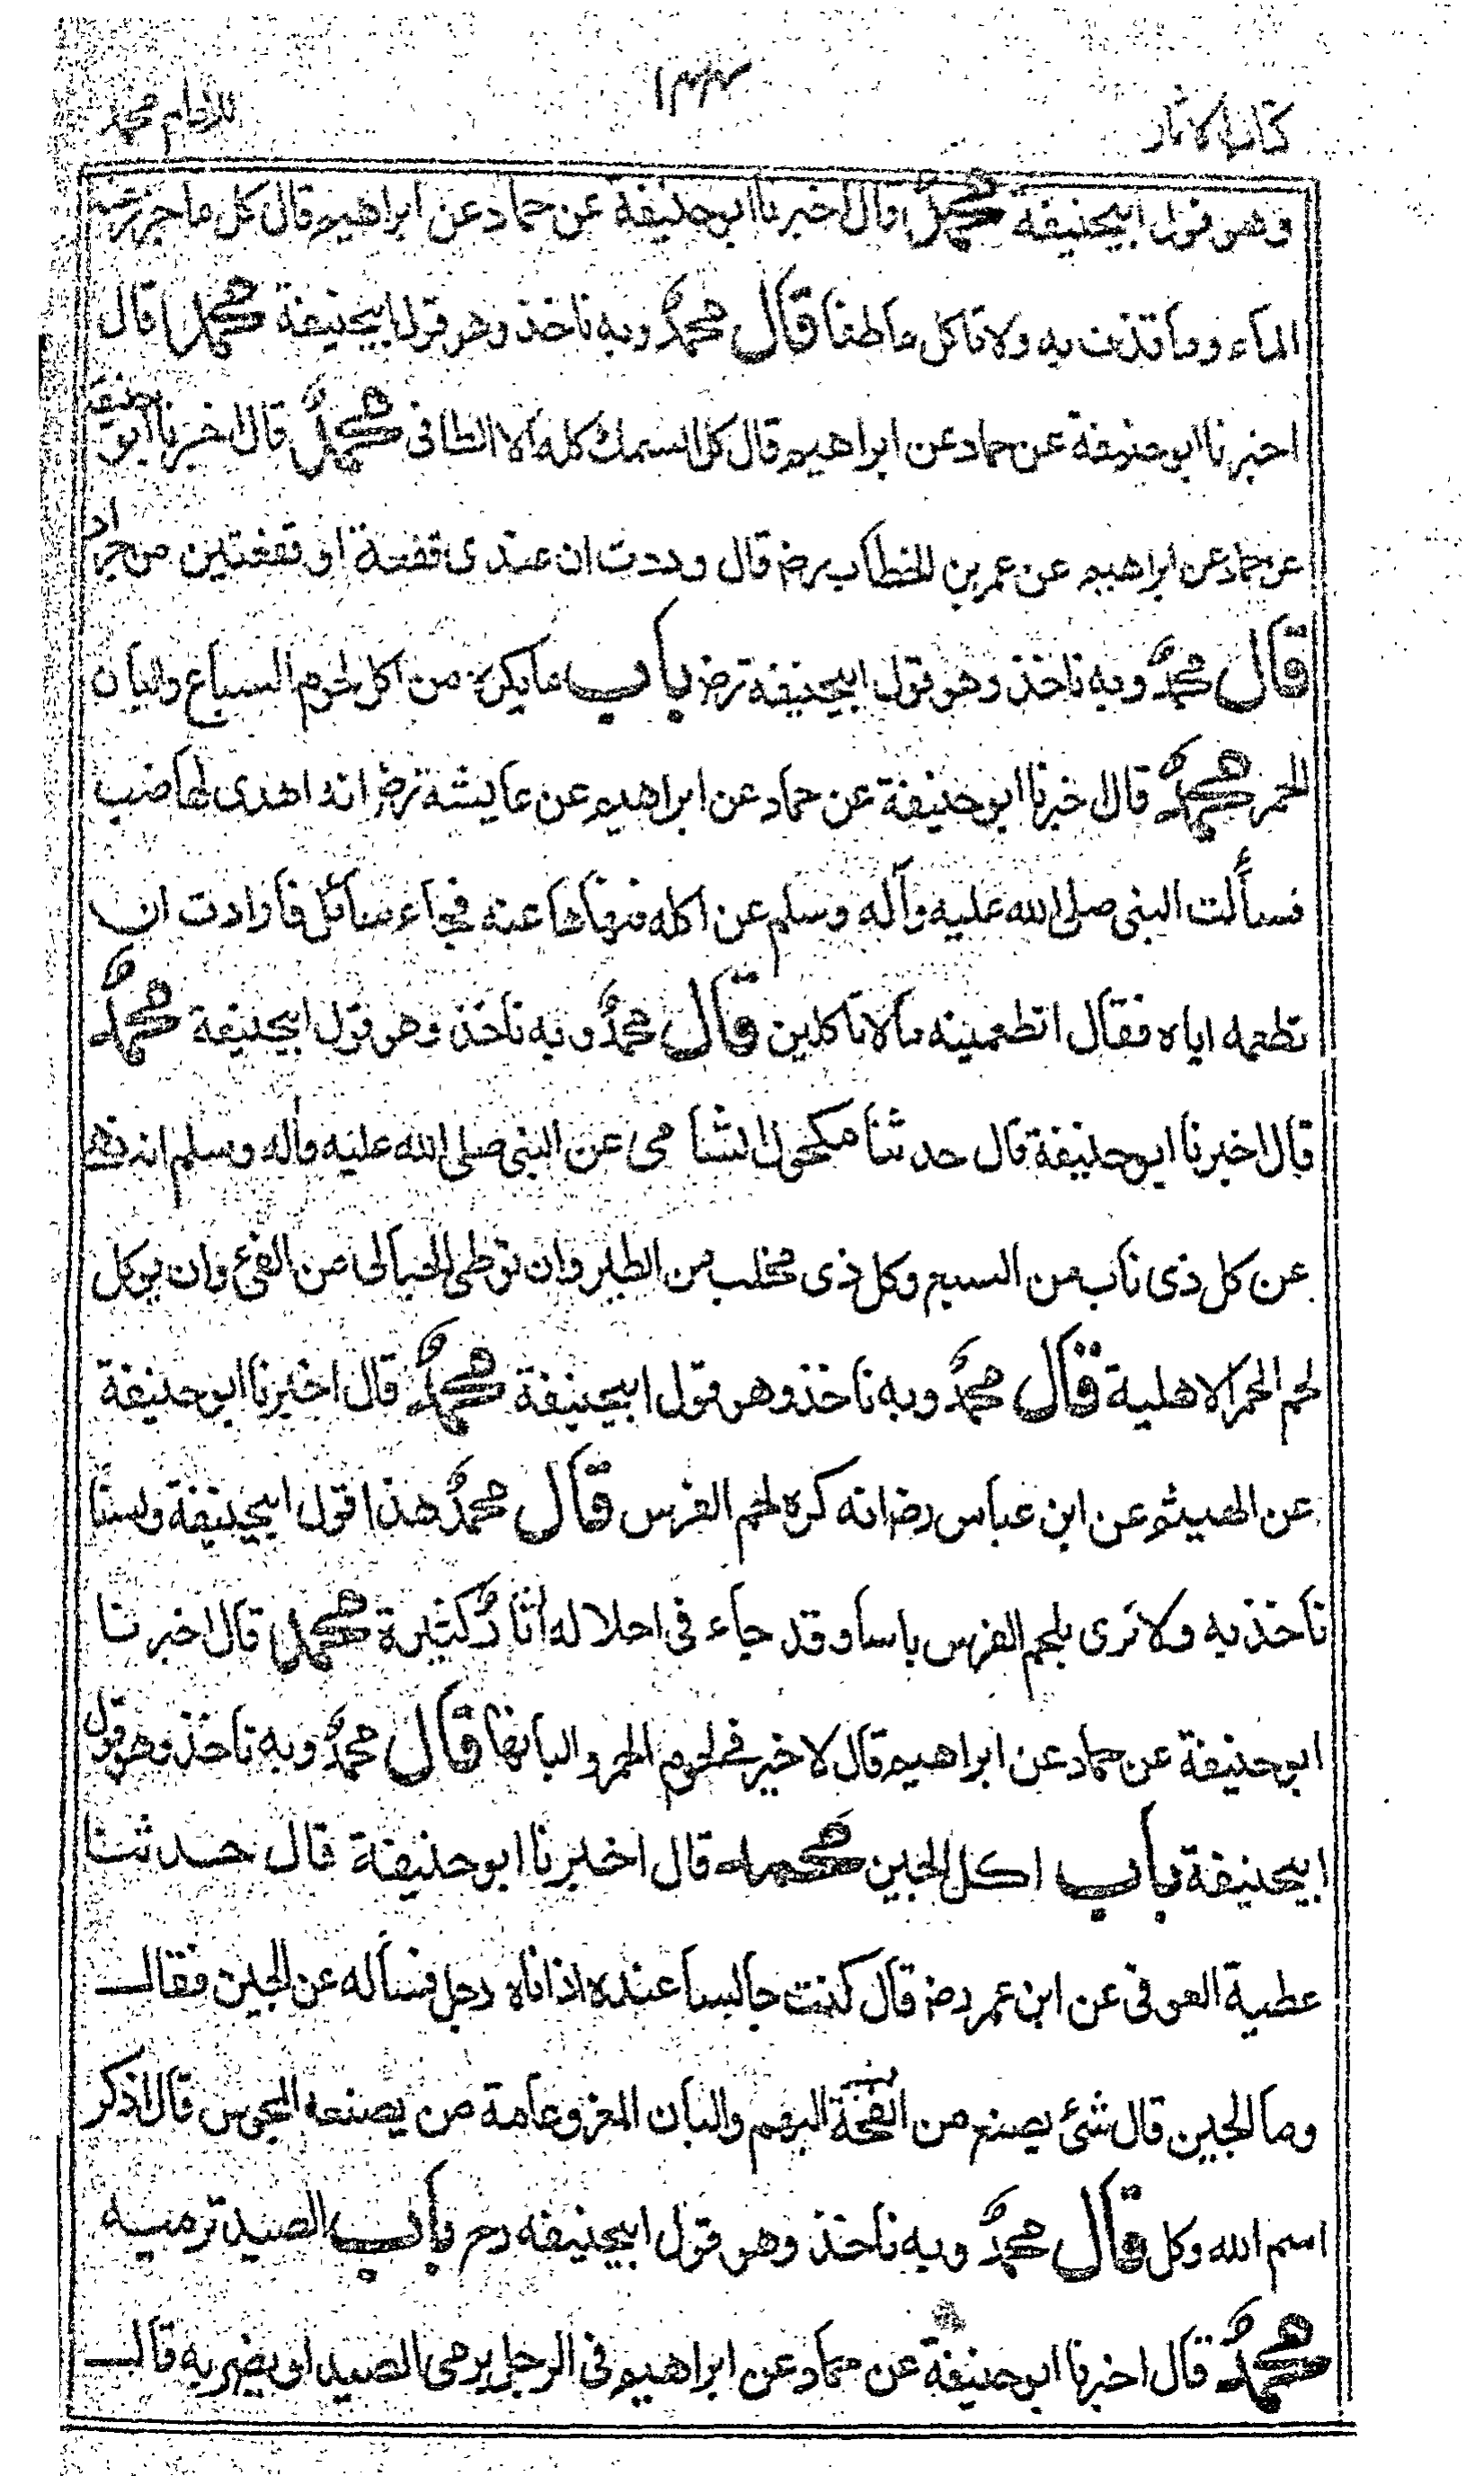 كتاب الاثار ١٣٢ للامام محمد
وهو قول ابيحنيفة محمد قال اخبرنا ابوحنيفة عن حماد عن ابراهيم قال كل ما جزر عنه
الماء وما قذف به ولا تاكل ما طفا قال محمد وبه ناخذ وهو قول ابيحنيفة محمد قال
اخبرنا ابوحنيفة عن حماد عن ابراهيم قال كل السمك كله الا الطافى محمد قال اخبرنا ابوحنيفة
عن حماد عن ابراهيم عن عمر بن الخطاب رض قال وددت ان عندى قفعة او قفعتين من جراد
قال محمد وبه ناخذ وهو قول ابيحنيفة رض باب ما يكره من اكل لحوم السباع والبان
الحمر محمد قال اخبرنا ابوحنيفة عن حماد عن ابراهيم عن عايشة رض انه اهدى لها ضب
فسألت النبى صلى الله عليه وآله وسلم عن اكله فنهاها عنه فجاء سائل فارادت ان
تطعمه اياه فقال اتطعمينه ما لا تاكلين قال محمد وبه ناخذ وهو قول ابيحنيفة محمد
قال اخبرنا ابوحنيفة قال حدثنا مكحول الشامى عن النبى صلى الله عليه وآله وسلم انه نهى
عن كل ذى ناب من السبع وكل ذى مخلب من الطير وان توطى الحبالى من الفئ وان يوكل
لحم الحمر الاهلية قال محمد وبه ناخذ وهو قول ابيحنيفة محمد قال اخبرنا ابوحنيفة
عن الهيثم عن ابن عباس رض انه كره لحم الفرس قال محمد هذا قول ابيحنيفة ولسنا
ناخذ به ولا نرى بلحم الفرس باسا وقد جاء فى احلاله آثار كثيرة محمد قال اخبرنا
ابوحنيفة عن حماد عن ابراهيم قال لا خير فى لحوم الحمر والبانها قال محمد وبه ناخذ وهو قول
ابيحنيفة باب اكل الجبن محمد قال اخبرنا ابوحنيفة قال حدثنا
عطية العوفى عن ابن عمر رض قال كنت جالسا عنده اذ اتاه رجل فسأله عن الجبن فقال
وما الجبن قال شئ يصنع من انفحة البهم والبان المعز وعامة من يصنعه المجوس قال اذكر
اسم الله وكل قال محمد وبه ناخذ وهو قول ابيحنيفه رح باب الصيد ترميه
محمد قال اخبرنا ابوحنيفة عن حماد عن ابراهيم فى الرجل يرمى الصيد او يضربه قال